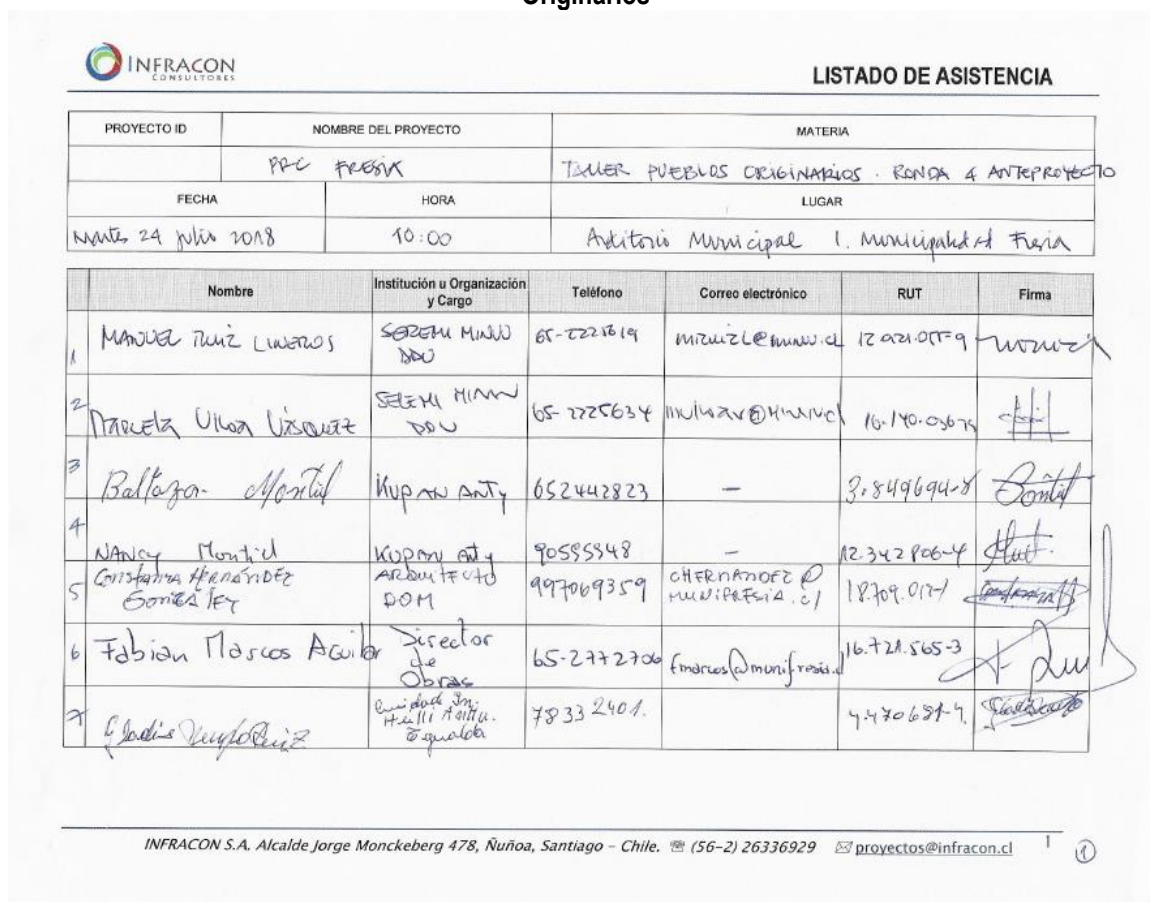 Originarios
INFRACON
CONSULTORES
LISTADO DE ASISTENCIA
PROYECTO ID NOMBRE DEL PROYECTO MATERIA
PRC FRESIA TALLER PUEBLOS ORIGINARIOS . RONDA 4 ANTEPROYECTO
FECHA HORA LUGAR
Martes 24 julio 2018 10:00 Auditorio Municipal I. Municipalidad Fresia
Nombre Institución u Organización y Cargo Teléfono Correo electrónico RUT Firma
1 MANUEL RUIZ LINEROS SEREMI MINVU DDU
2 MARCELA ULLOA VÁSQUEZ SEREMI MINVU DDU 65-2225634
3 Baltazar Montiel KUPAN ANTY 652442823 — 3.849694-8
4 NANCY Montiel KUPAN Anty 90595948 — 12.342806-4
5 Constanza HERNÁNDEZ GONZALEZ ARQUITECTO DOM 997069359 CHERNANDEZ@MUNIFRESIA.cl
6 Fabian Marcos Aguilar Director de Obras 65-2772706 fmarcos@munifresia.cl 16.721.565-3
7 Gladis Ruiz 78332401.
INFRACON S.A. Alcalde Jorge Monckeberg 478, Ñuñoa, Santiago – Chile. ☏ (56–2) 26336929 ✉ proyectos@infracon.cl 1
1